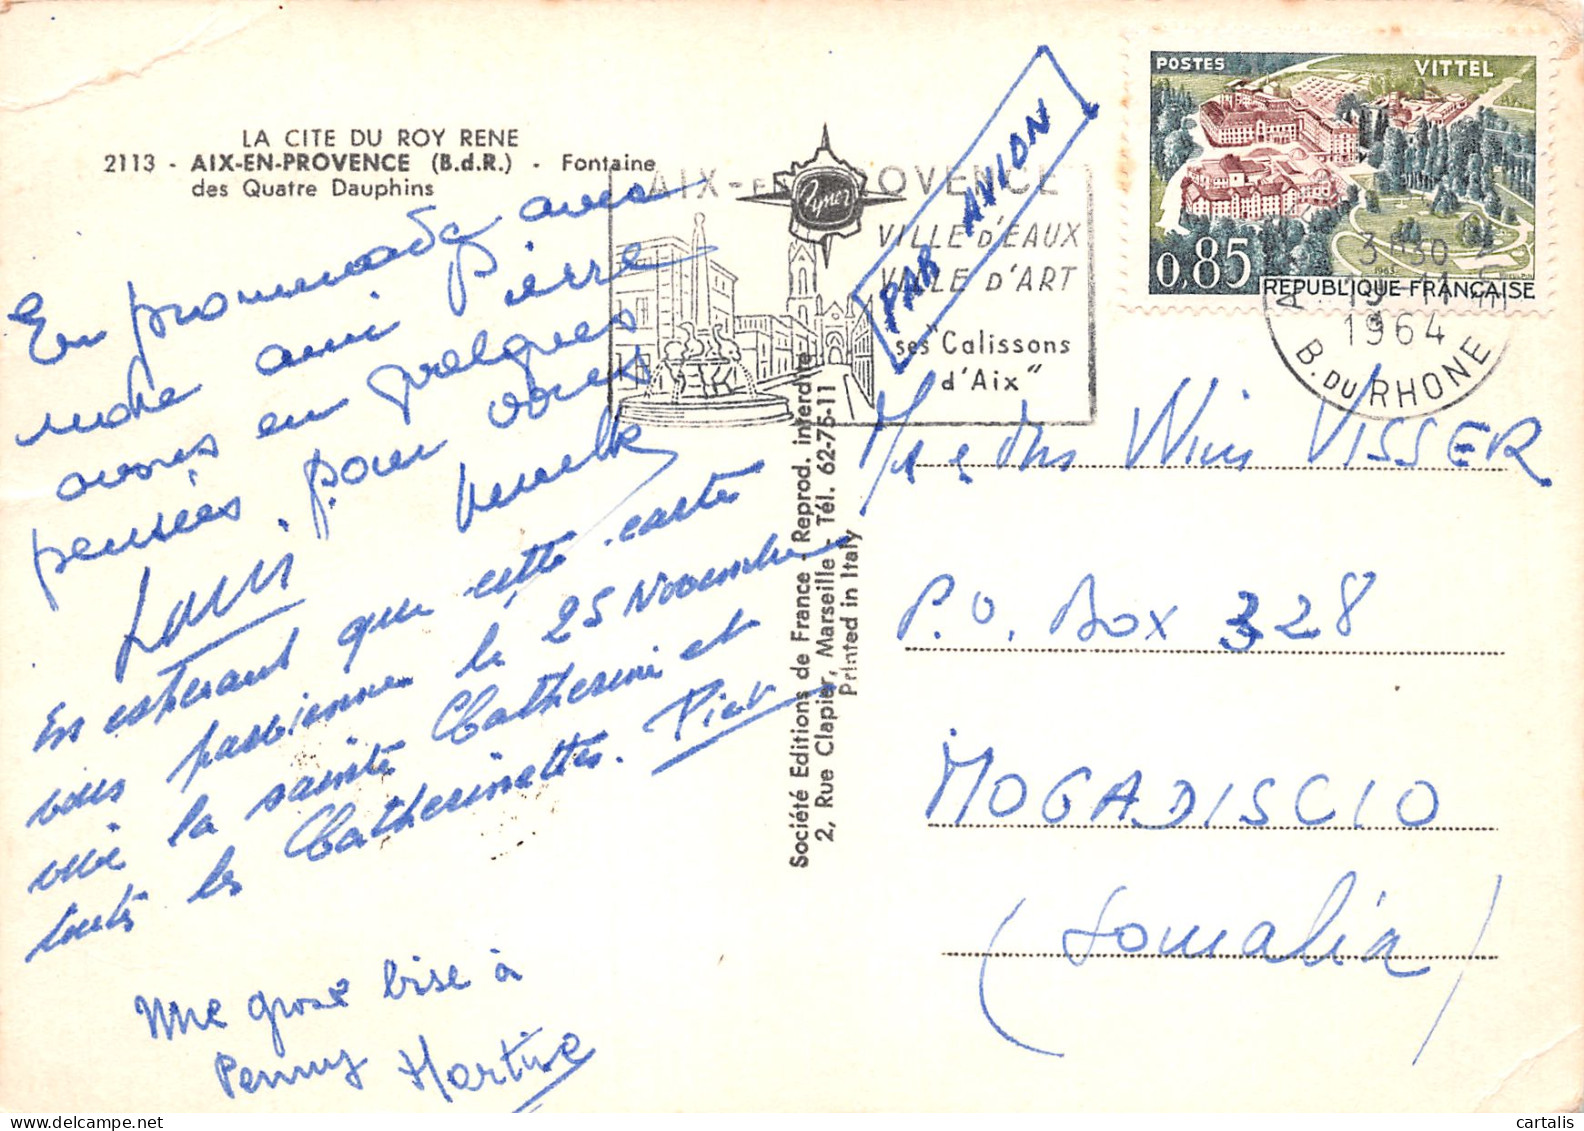 LA CITE DU ROY RENE
2113 - AIX-EN-PROVENCE (B.d.R.) - Fontaine
des Quatre Dauphins
En promenade avec
notre ami Pierre
avons en quelques
pensées pour vous
Louis
En esperant que cette carte
vous parvienne le 25 Novembre
vive la sainte Catherine et
toutes les Catherinettes. Piet
Une grosse bise à
Penny Martine
Société Editions de France - Reprod. interdite
2, Rue Clapier, Marseille - Tél. 62-75-11
Printed in Italy
AIX-EN-PROVENCE
VILLE D'EAUX
VILLE D'ART
ses "Calissons
d'Aix"
PAR AVION
POSTES VITTEL
0,85 RÉPUBLIQUE FRANÇAISE
1963
1964
B. DU RHONE
Mr & Mrs Wim VISSER
P.O. Box 328
MOGADISCIO
(Somalia)
cartalis